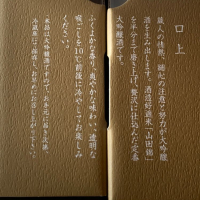 口上
蔵人の情熱、細心の注意と努力が大吟醸
酒を生み出します。酒造好適米「山田錦」
を半分まで磨き上げ、贅沢に仕込んだ定番
大吟醸酒です。
ふくよかな香り、爽やかな味わい、透明な
喉ごしを10℃前後に冷やしてお楽しみ
ください。